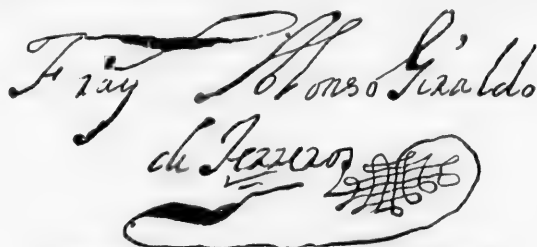 Fray Alonso Giraldo
de Terreros